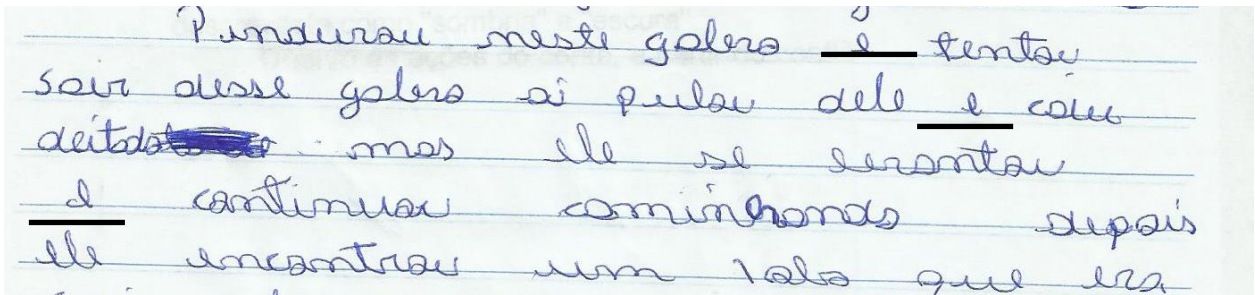 Pindurou neste galero e tentou
sair desse galero ai pulou dele e caiu
deitado mas ele se levantou
e continuou caminhando depois
ele encontrou um lobo que era